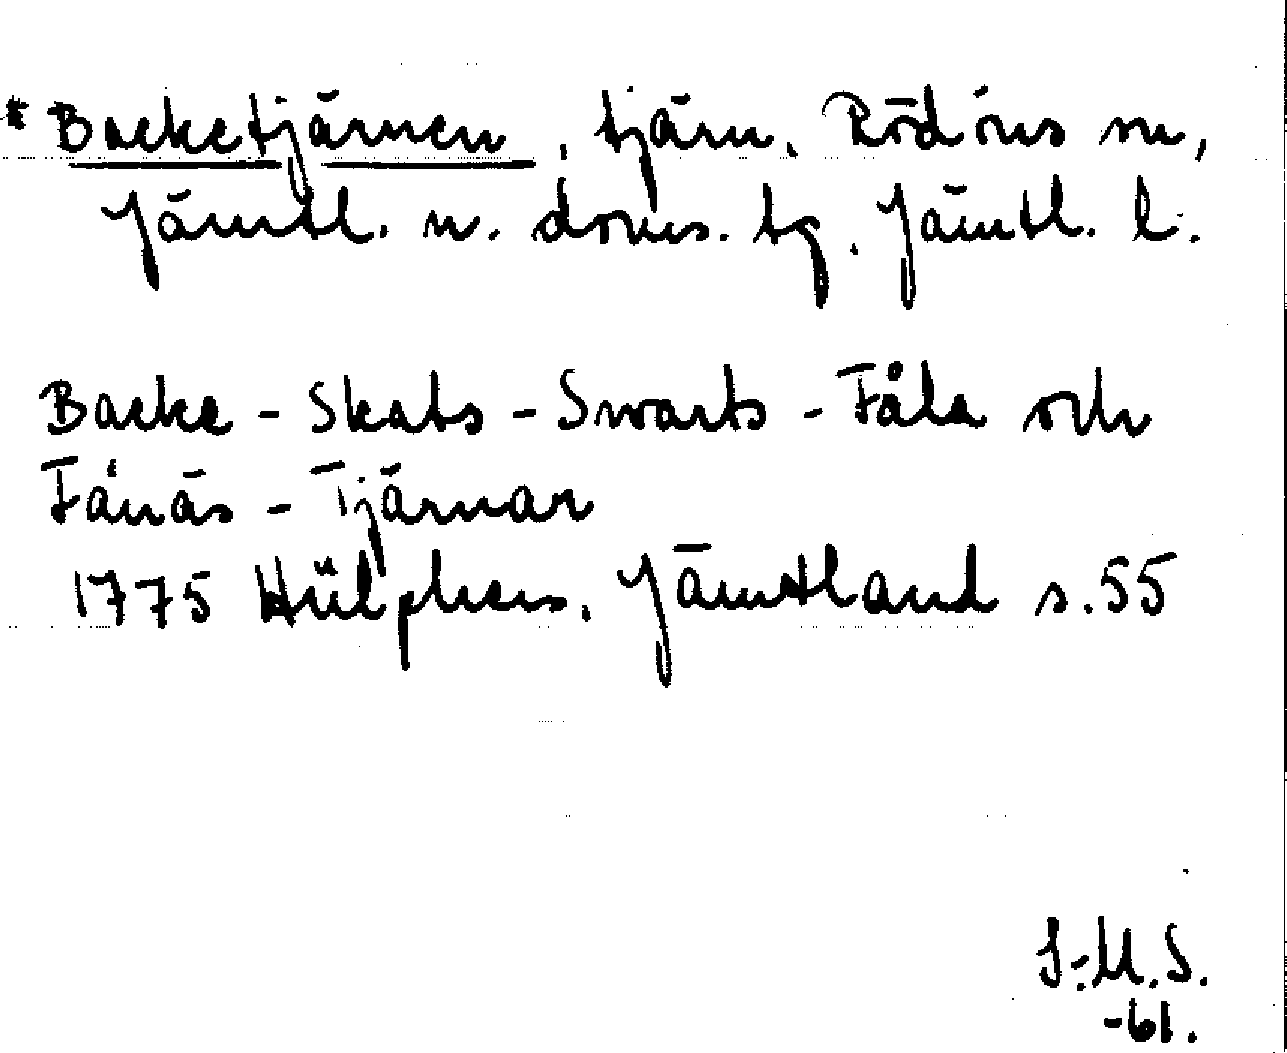 * Backetjärnen, tjärn, Rödöns sn,
Jämtl. n. doms. tg. Jämtl. l.
Backe - Skats - Swarts - Fåle och
Fånäs - Tjärnar
1775 Hülphers. Jämtland s. 55
S.-M.S.
-61.